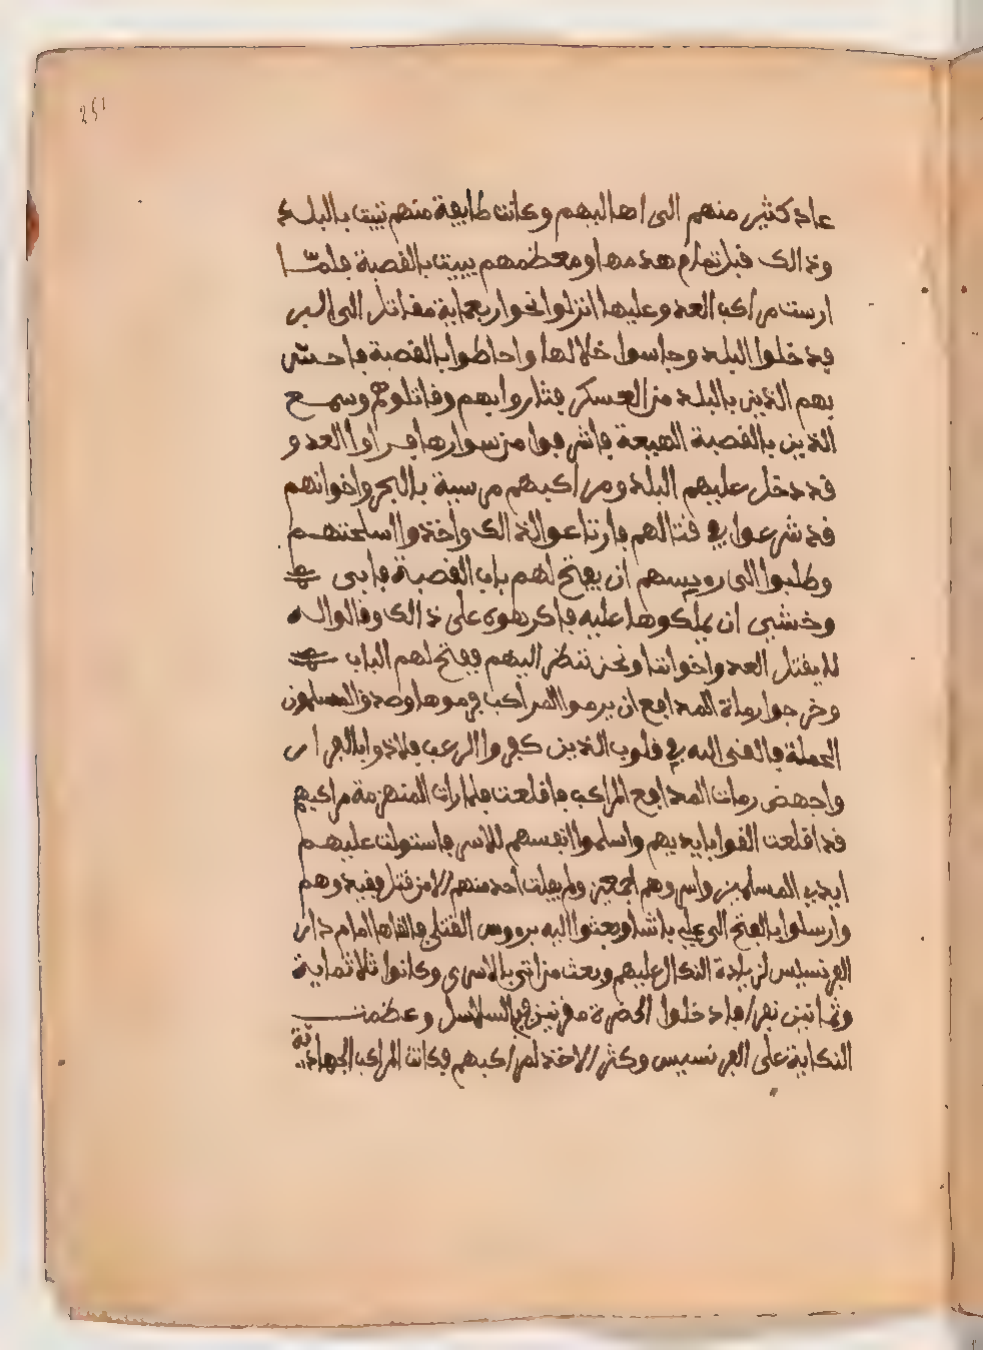 251
عاد كثير منهم الى اهاليهم وكانت طايفة منهم تبيت بالبلد
وذالك قبل تمام هدمها ومعظمهم يبيت بالقصبة فلمّا
ارست مراكب العدو عليها انزلوا نحوا ربعماية مقاتل الى البر
فدخلوا البلد وجاسوا خلالها واحاطوا بالقصبة فاحسّ
بهم الذين بالبلد من العسكر فثاروا بهم وقاتلوهم وسمع
الذين بالقصبة الهيعة فاشرفوا من سوارها فراوا العدو
قد دخل عليهم البلد ومراكبهم مرسية بالبحر واخوانهم
قد شرعوا في قتالهم فارتاعوا لذالك واخذوا اسلحتهم
وطلبوا الى رويسهم ان يفتح لهم باب القصبة فابى
وخشي ان يملكوها عليه فاكرهوه على ذالك وقالوا له
لا يقتل العدو اخواننا ونحن ننظر اليهم ففتح لهم الباب
وخرجوا رماة المدافع ان يرموا المراكب فرموها وصدق المسلمون
الحملة فالقى الله في قلوب الذين كفروا الرعب فلاذوا بالفرار
واجهض رمات المدافع المراكب فاقلعت فلما رات المنهزمة مراكبهم
قد اقلعت القوا بايديهم واسلموا انفسهم للاسر فاستولت عليهم
ايدي المسلمين واسروهم اجمعين ولم يفلت احد منهم الا من قتل وقيدوهم
وارسلوا بالفتح الى علي باشا وبعثوا اليه برووس القتلى فالقاها امام دار
الفرنسيس لزيادة النكال عليهم وبعث من اتى بالاسرى وكانوا ثلاثماية
وثمانين نفرا فادخلوا الحضرة مقرنين في السلاسل وعظمت
النكاية على الفرنسيس وكثر الاخذ لمراكبهم فكانت المراكب الجهادية